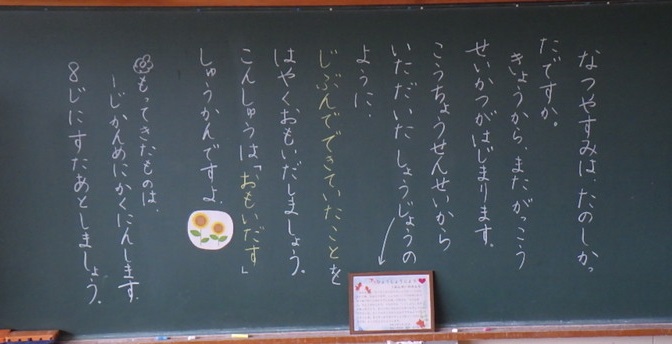 なつやすみは、たのしかっ
たですか。
きょうから、またがっこう
せいかつがはじまります。
こうちょうせんせいから
いただいた しょうじょうの
ように、
じぶんでできていたことを
はやくおもいだしましょう。
こんしゅうは「おもいだす」
しゅうかんですよ。
もってきたものは、
一じかんめにかくにんします。
8じにすたあとしましょう。